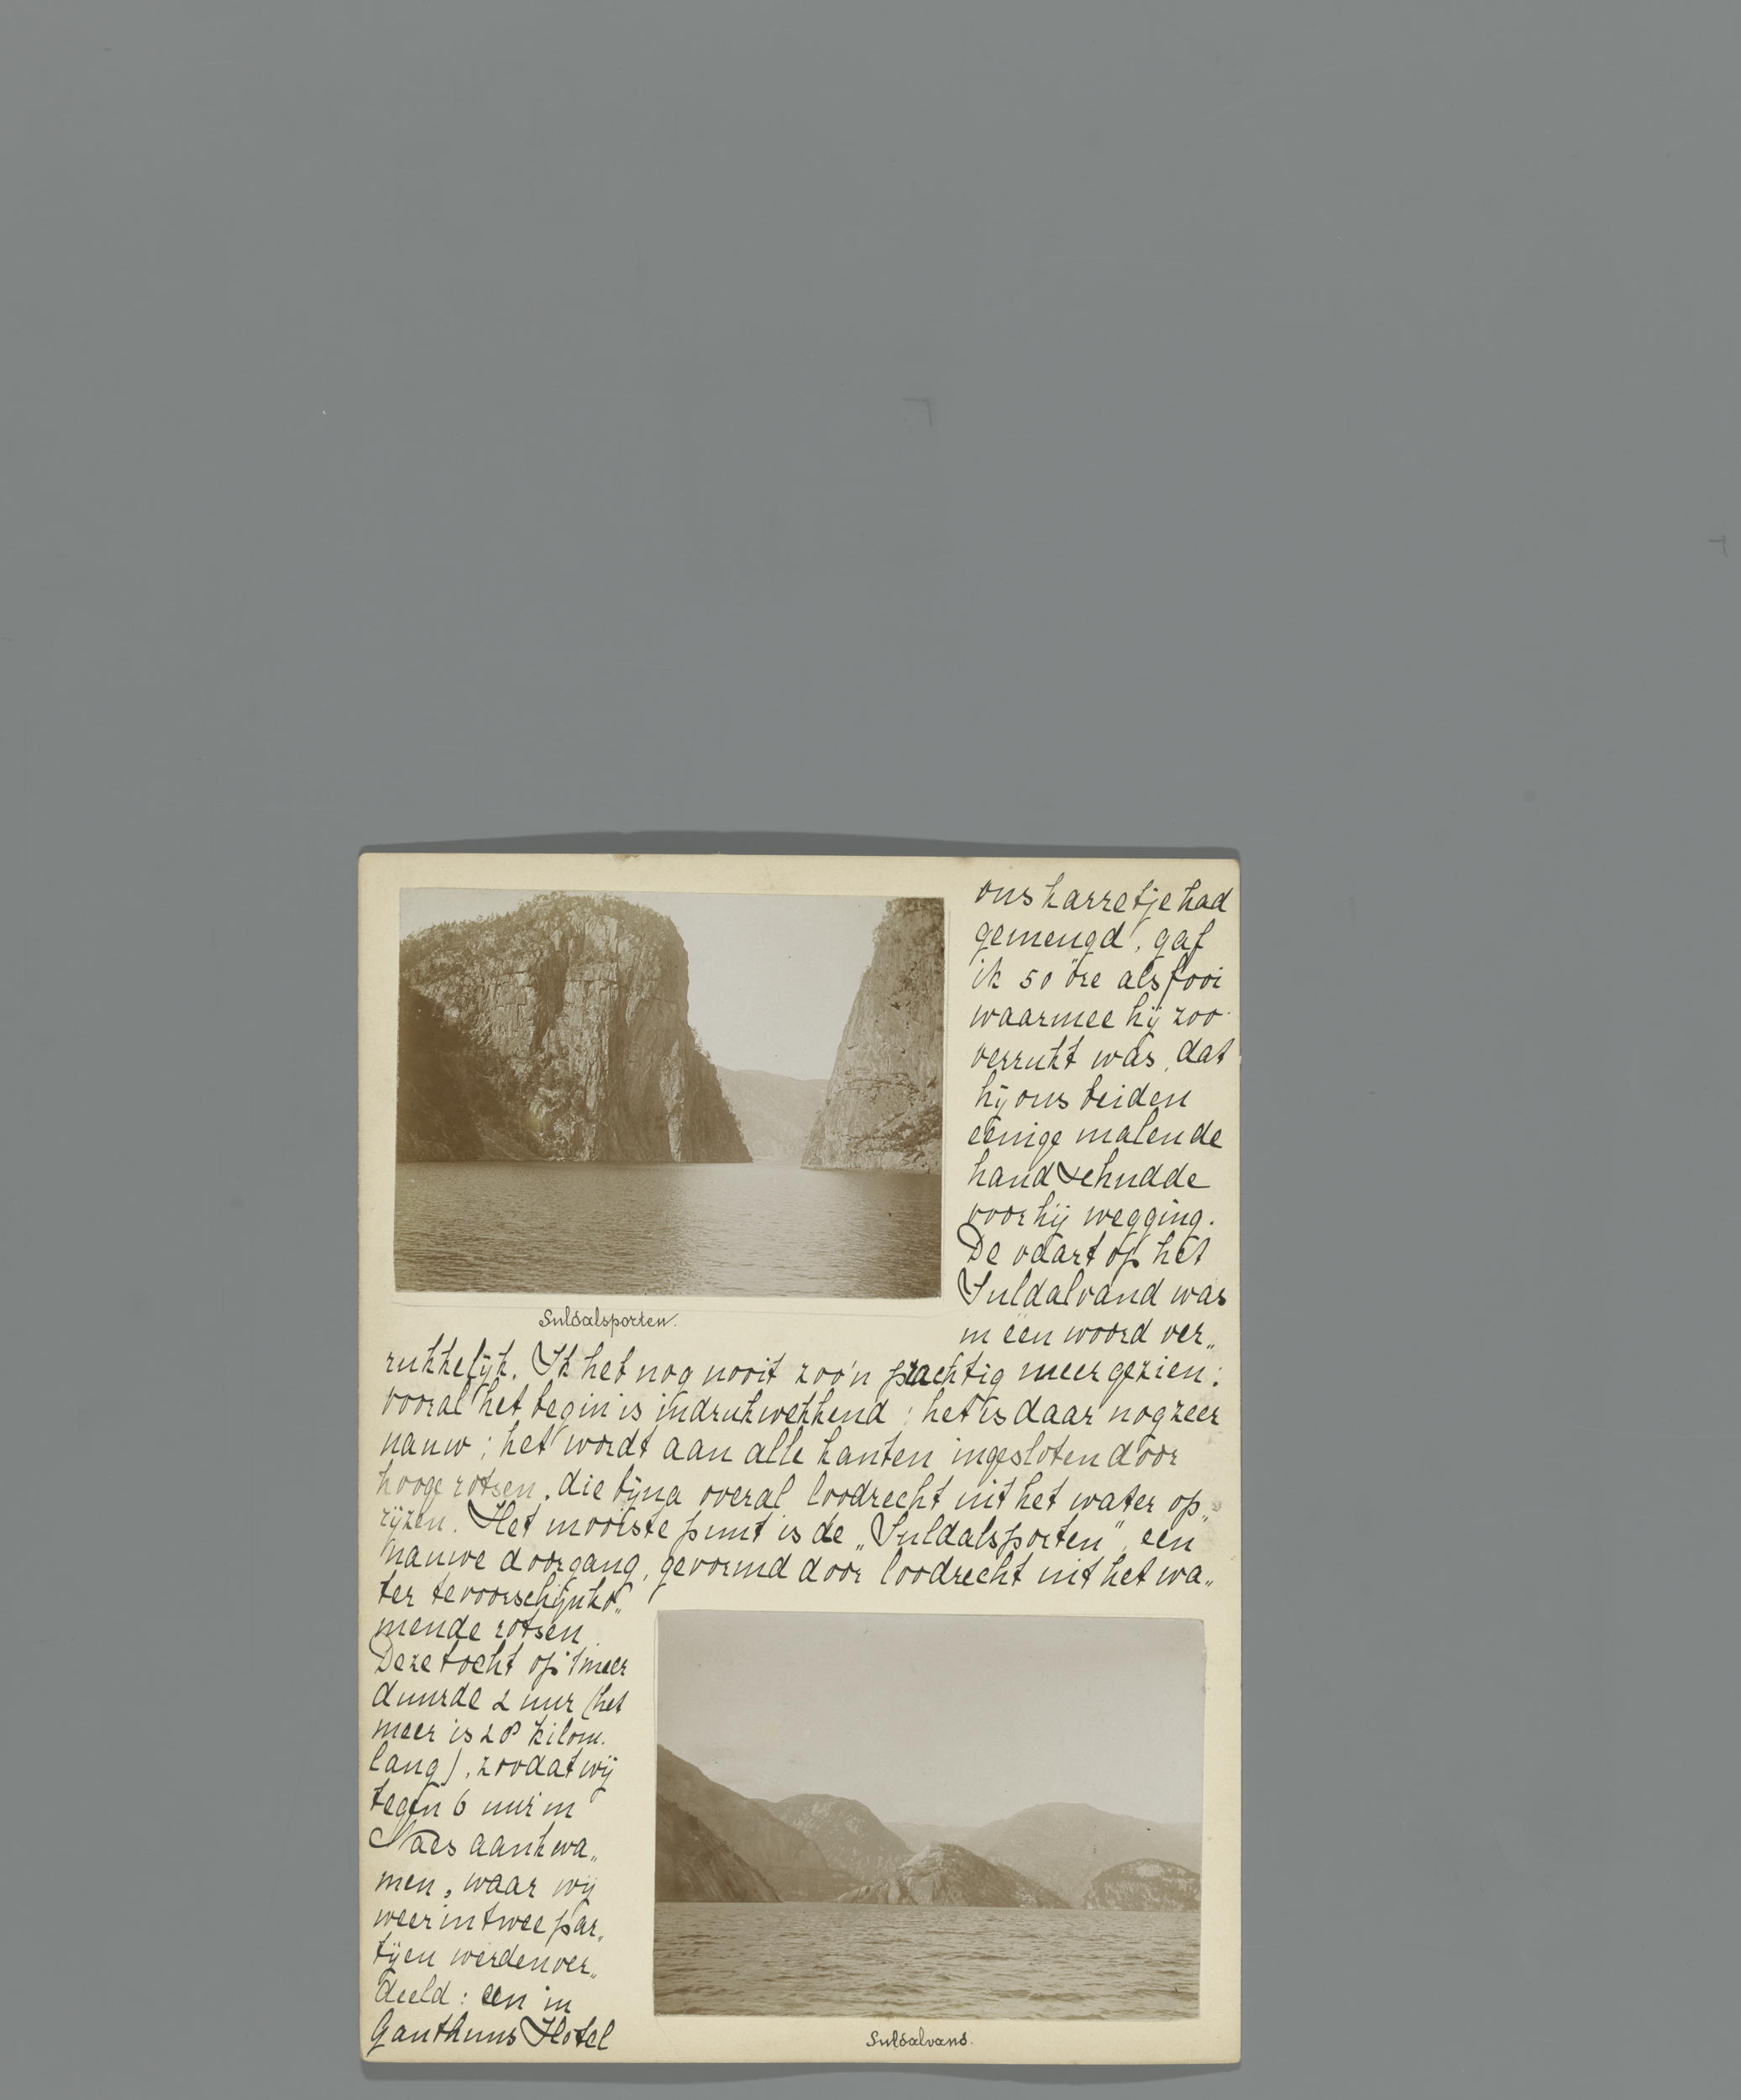 ons karretje had
gemengd, gaf
ik 50 öre als fooi
waarmee hij zoo
verrukt was, dat
hij ons beiden
eenige malen de
hand schudde
voor hij wegging.
De vaart op het
Suldalvand was
in één woord ver„
Suldalsporten.
rukkelijk. Ik heb nog nooit zoo'n prachtig meer gezien;
vooral het begin is indrukwekkend; het is daar nog zeer
nauw; het wordt aan alle kanten ingesloten door
hooge rotsen, die bijna overal loodrecht uit het water op„
rijzen. Het mooiste punt is de „Suldalsporten", een
nauwe doorgang, gevormd door loodrecht uit het wa„
ter te voorschijn ko„
mende rotsen.
Deze tocht op 't meer
duurde 2 uur (het
meer is 28 kilom.
lang), zoodat wij
tegen 6 uur in
Naes aankwa„
men, waar wij
weer in twee par„
tijen werden ver„
deeld: een in
Hotel
Suldalvand.